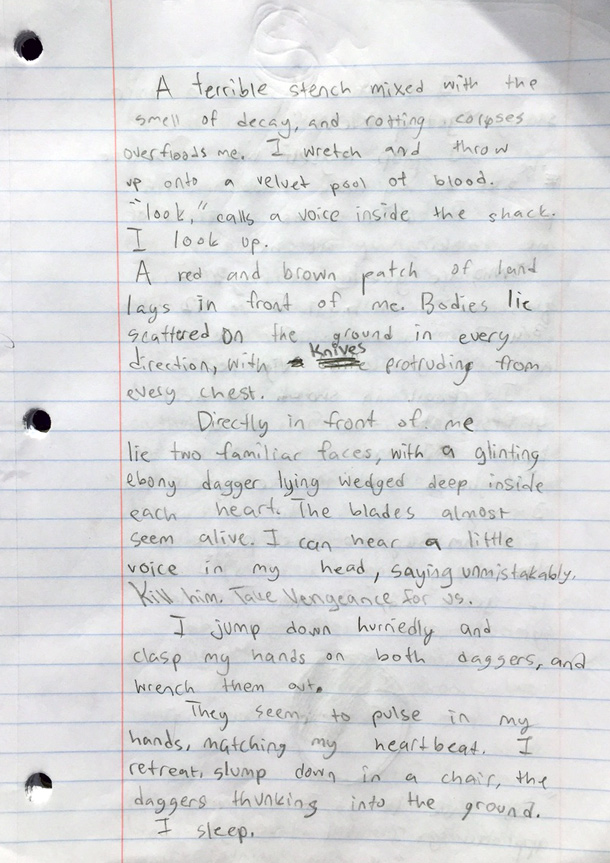 A terrible stench mixed with the
smell of decay, and rotting corpses
overfloods me. I wretch and throw
up onto a velvet pool of blood.
"look," calls a voice inside the shack.
I look up.
A red and brown patch of land
lays in front of me. Bodies lie
scattered on the ground in every
direction, with Knives protruding from
every chest.
Directly in front of me
lie two familiar faces, with a glinting
ebony dagger lying wedged deep inside
each heart. The blades almost
seem alive. I can hear a little
voice in my head, saying unmistakably,
Kill him. Take Vengeance for us.
I jump down hurriedly and
clasp my hands on both daggers, and
wrench them out.
They seem to pulse in my
hands, matching my heartbeat. I
retreat, slump down in a chair, the
daggers thunking into the ground.
I sleep.